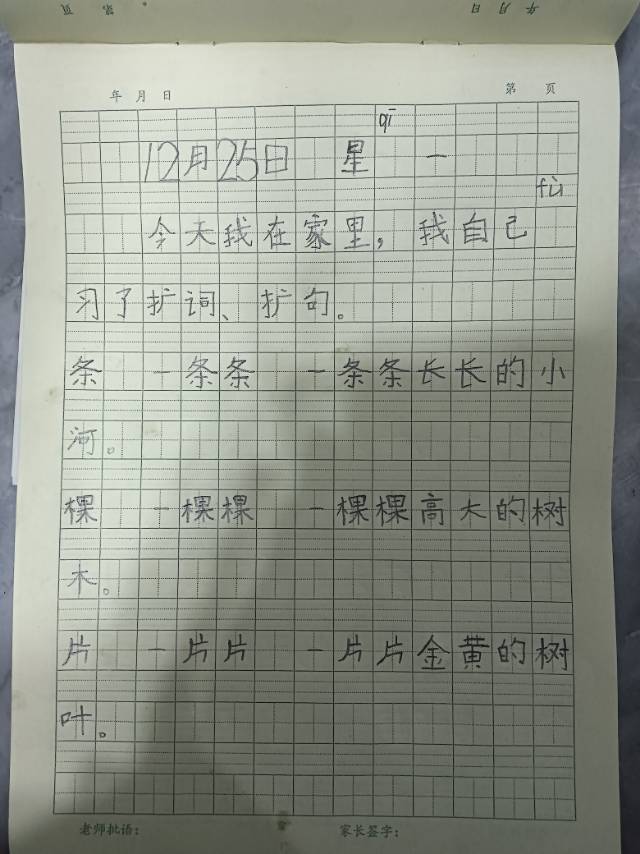 第 页 年 月 日
年 月 日 第 页
qī
12月25日 星 一
fù
今天我在家里，我自己
习了扩词、扩句。
条 一条条 一条条长长的小
河。
棵 一棵棵 一棵棵高大的树
木。
片 一片片 一片片金黄的树
叶。
老师批语： 家长签字：